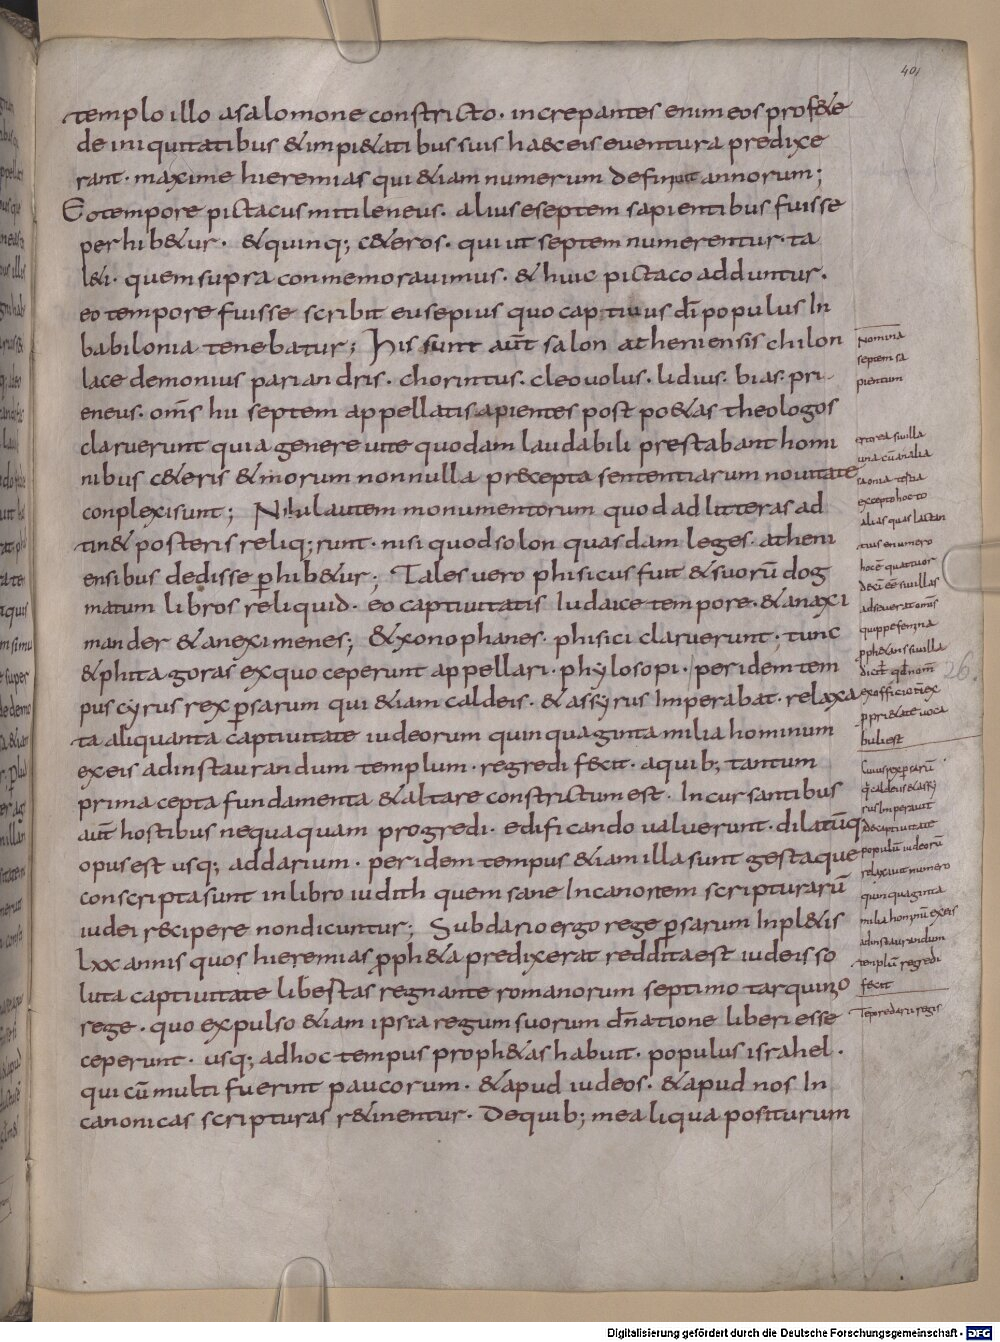 401
templo illo asalomone constricto. increpantes enim eos prof&e
de iniquitatibus & impi&atibus suis haec eis eventura predixe
rant. maxime hieremias qui &iam numerum definiuit annorum;
Eo tempore pictacus mitileneus. alius eseptem sapientibus fuisse
perhib&ur. & quinq; c&eros. qui ut septem numerentur. ta
l&i. quem supra conmemorauimus. & huic pictaco adduntur.
eo tempore fuisse scribit eusepius quo captiuus dī populus In
babilonia tenebatur; His sunt aut̄ salon atheniensis chilon
lacedemonius pariandris. chorintus. cleouolus. lidius. bias. pri
eneus. om̄s hii septem appellati sapientes post po&as theologos
claruerunt quia genere uite quodam laudabili prestabant homi
nibus c&eris & morum nonnulla precepta sententiarum nouitate
conplexi sunt; Nihil autem monumentorum quod ad litteras ad
tin& posteris reliq;runt. nisi quod solon quasdam leges. atheni
ensibus dedisse p̱hib&ur; Tales uero phisicus fuit & suorū dog
matum libros reliquid. eo captiuitatis Iudaice tempore. & anaxi
mander & aneximenes; & xonophanes. phisici claruerunt. tunc
& phitagoras ex quo ceperunt appellari. phylosopi. per idem tem
pus cyrus rex p̱sarum qui &iam caldeis. & assyrus Imperabat. relaxa
ta aliquanta captiuitate iudeorum quinquaginta milia hominum
ex eis ad instaurandum templum. regredi fecit. a quib; tantum
prima cepta fundamenta & altare constrictum est. Incursantibus
aut̄ hostibus nequaquam progredi. edificando ualuerunt. dilatūq;
opus est usq; ad darium. per idem tempus &iam illa sunt gesta que
conscripta sunt in libro iudith quem sane In canonem scripturarū
iudei recipere non dicuntur; Sub dario ergo rege p̱sarum Inpl&is
lxx annis quos hieremias p̱ph&a predixerat reddita est iudeis so
luta captiuitate lib̄estas regnante romanorum septimo tarquino
rege. quo expulso &iam ipsi a regum suorum dn̄atione liberi esse
ceperunt. usq; ad hoc tempus proph&as habuit. populus israhel.
qui cū multi fuerint paucorum. & apud iudeos. & apud nos In
canonicas scripturas r&inentur. De quib; me aliqua positurum
Nomina
septem sa
pientum
ertirea siuilla
una cū ai alia
excepto hoc to
alias quas lactan
tius enumero
hoc ē quatuor
deci ēē siuillas
adseuerat om̄s
quippe femina
pph&ans siuilla
dicit̄ qd̄ nom̄
ex officio n̄ ex
p priḙtate uoca
buli est
Cirus rex p̱sarū
q̄ caldeis & assy
rus Imperauit
de captiuitate
populū iudeorū
relaxauit numero
quinquaginta
milia hominū ex eis
ad instaurandum
templū regredi
fecit
Tēpore darii regis
26.
Digitalisierung gefördert durch die Deutsche Forschungsgemeinschaft - DFG